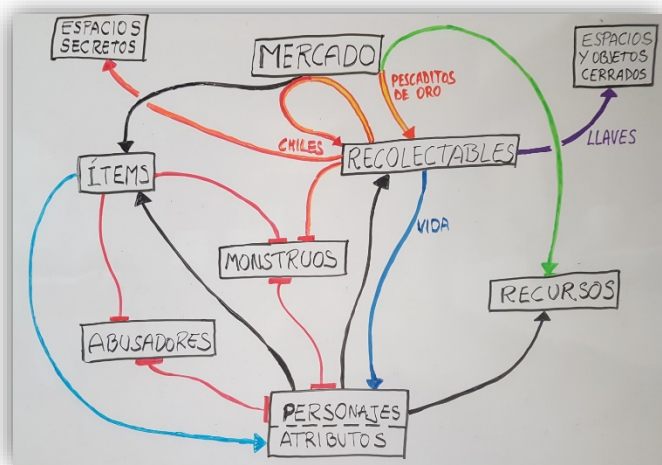 ESPACIOS
SECRETOS
MERCADO
ESPACIOS
Y OBJETOS
CERRADOS
PESCADITOS
DE ORO
CHILES
RECOLECTABLES
LLAVES
ÍTEMS
VIDA
MONSTRUOS
RECURSOS
ABUSADORES
PERSONAJES
ATRIBUTOS